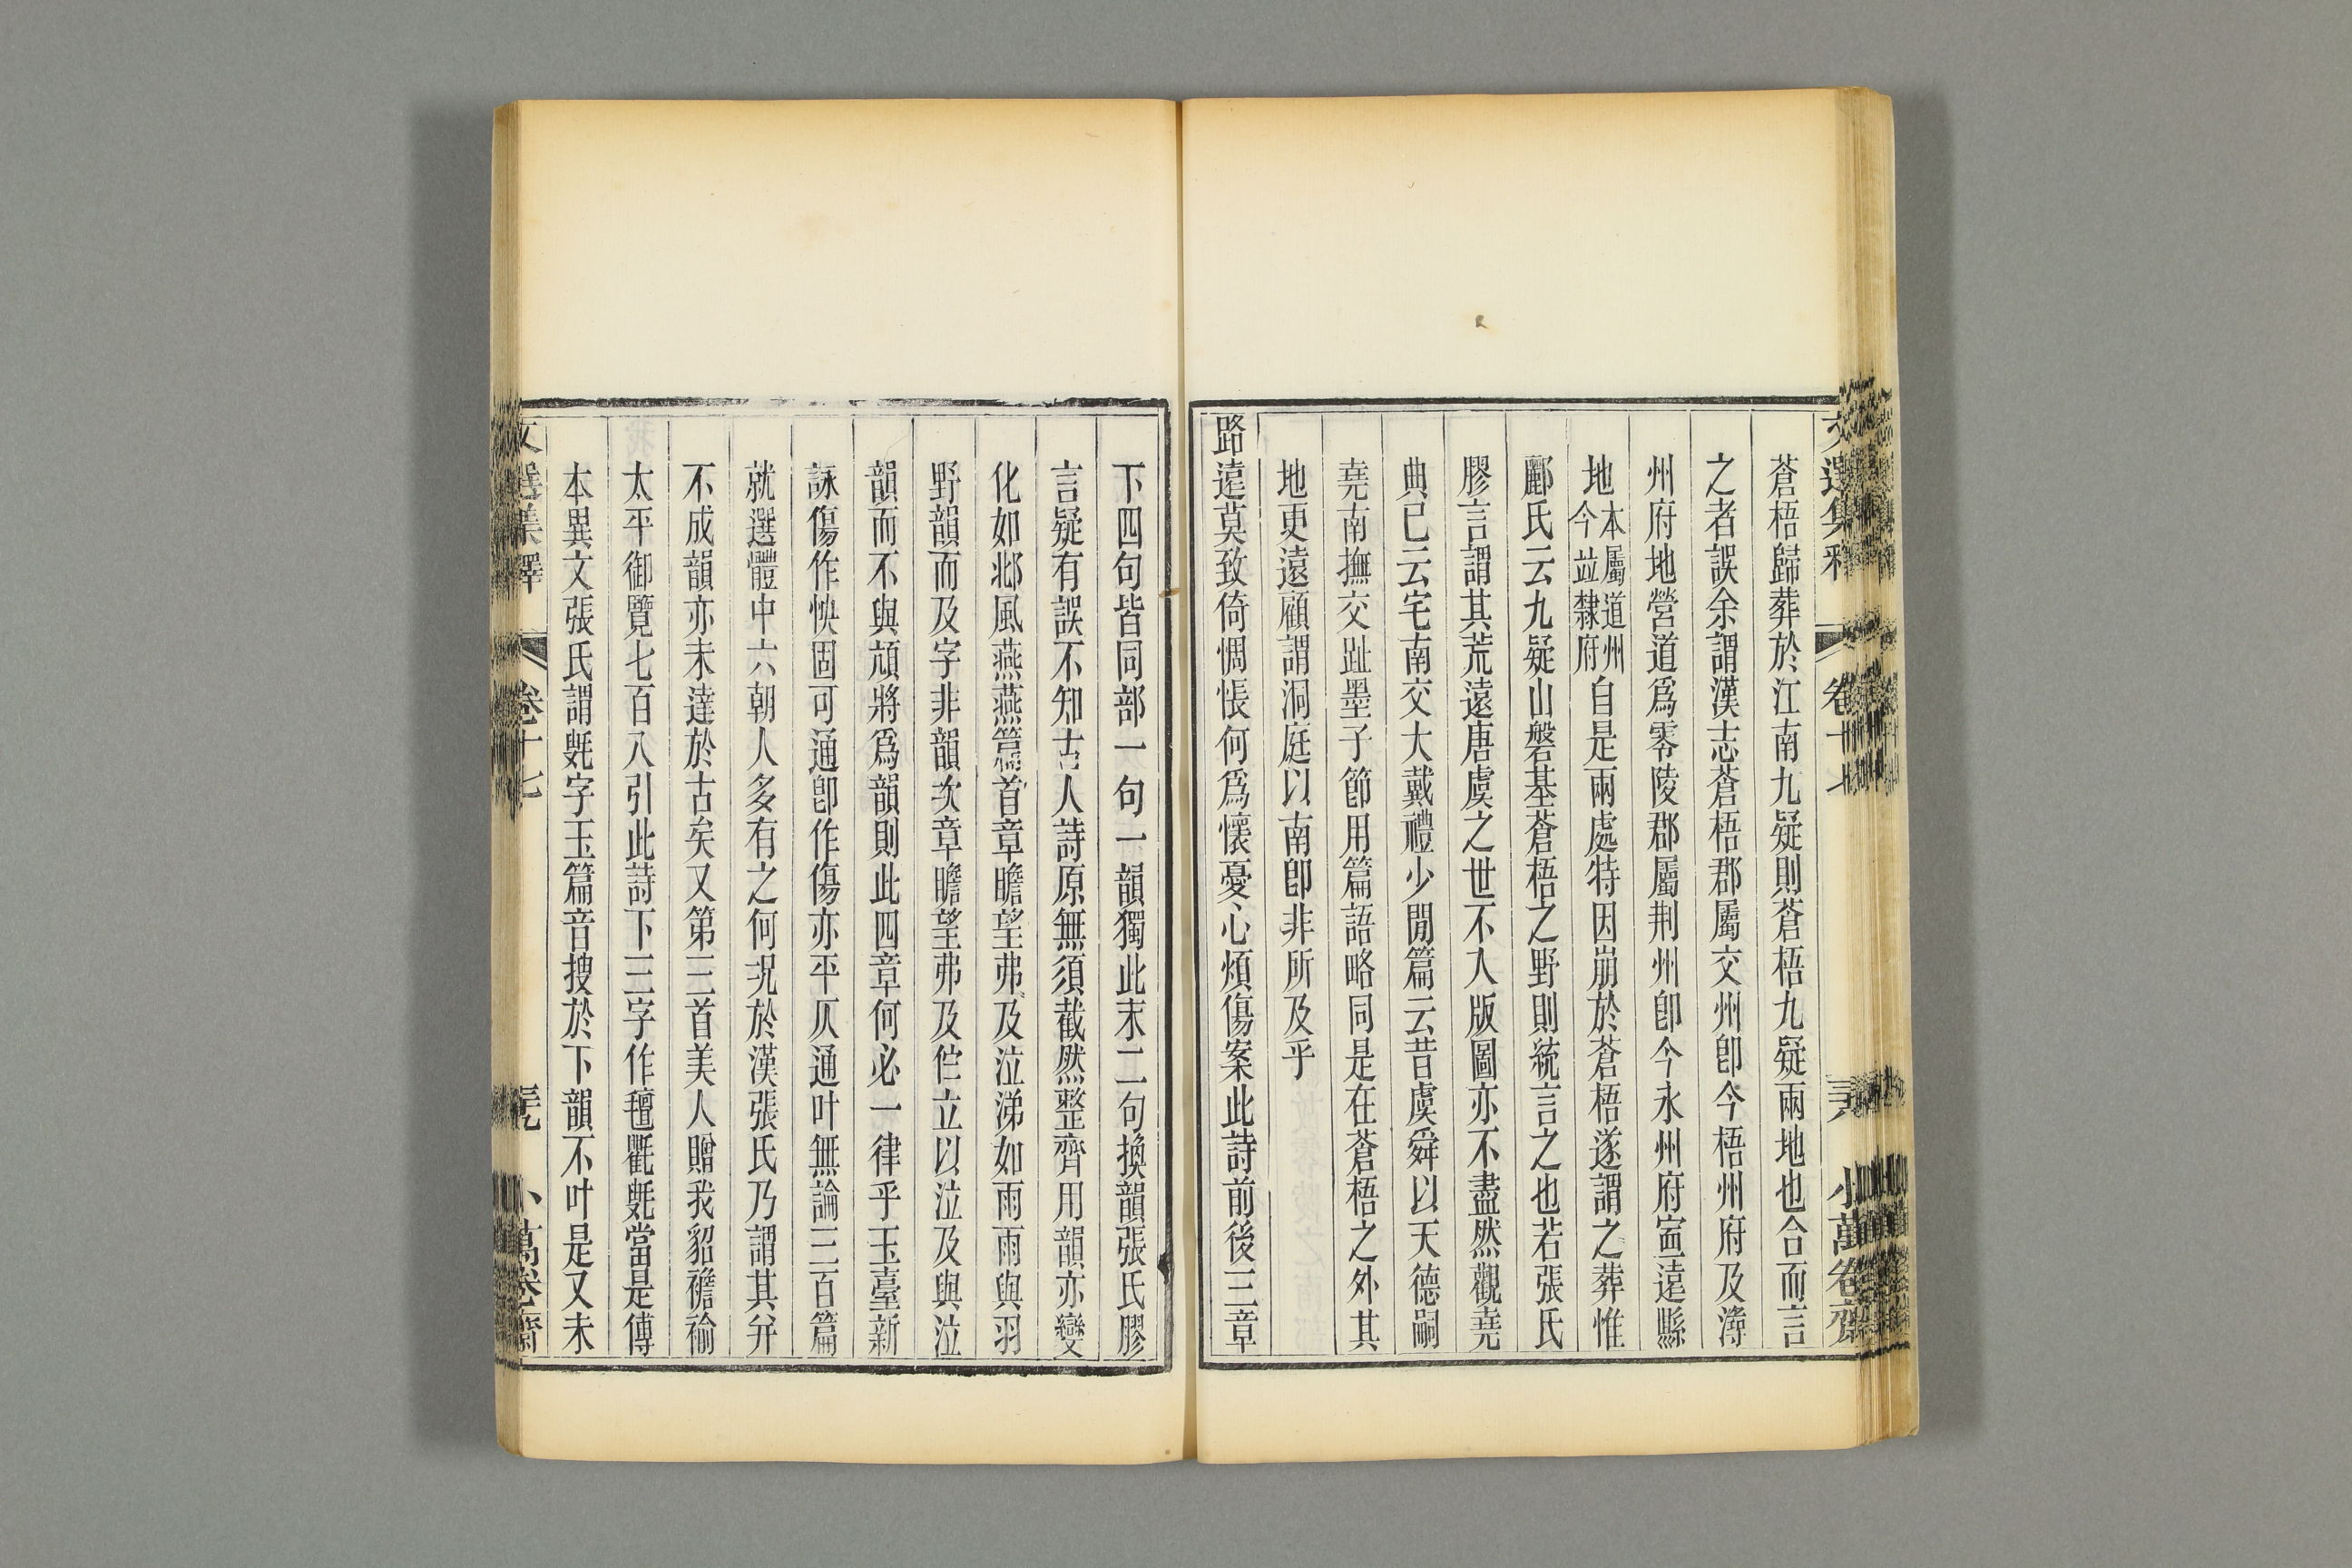 文選集釋 卷十七 小萬卷齋
蒼梧歸葬於江南九疑則蒼梧九疑兩地也合而言
之者誤余謂漢志蒼梧郡屬交州卽今梧州府及潯
州府地營道爲零陵郡屬荆州卽今永州府甯遠縣
地本屬道州今竝隸府自是兩處特因崩於蒼梧遂謂之葬惟
酈氏云九疑山磐基蒼梧之野則統言之也若張氏
膠言謂其荒遠唐虞之世不人版圖亦不盡然觀堯
典已云宅南交大戴禮少閒篇云昔虞舜以天德嗣
堯南撫交趾墨子節用篇語略同是在蒼梧之外其
地更遠顧謂洞庭以南卽非所及乎
路遠莫致倚惆悵何爲懷憂心煩傷案此詩前後三章
下四句皆同部一句一韻獨此末二句換韻張氏膠
言疑有誤不知古人詩原無須截然整齊用韻亦變
化如邶風燕燕篇首章瞻望弗及泣涕如雨雨與羽
野韻而及字非韻次章瞻望弗及伫立以泣及與泣
韻而不與頏將爲韻則此四章何必一律乎玉臺新
詠傷作怏固可通卽作傷亦平仄通叶無論三百篇
就選體中六朝人多有之何况於漢張氏乃謂其弁
不成韻亦未達於古矣又第三首美人贈我貂襜褕
太平御覽七百八引此詩下三字作氊氍毹當是傳
本異文張氏謂毹字玉篇音搜於下韻不叶是又未
文選集釋 卷十七 小萬卷齋